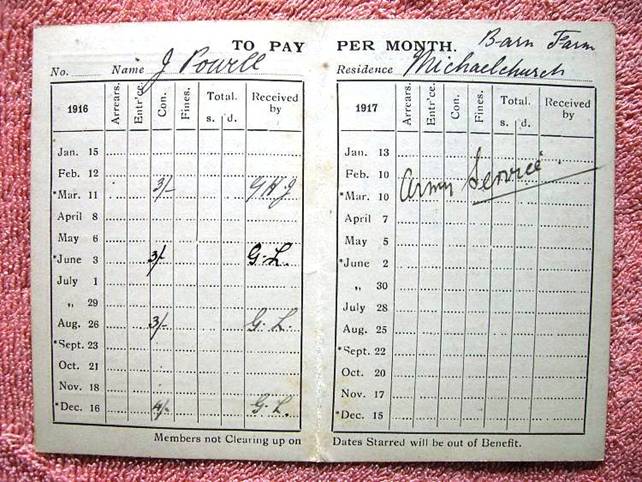 TO PAY PER MONTH.
No. Name J Powell
Residence Barn Farm
Michaelchurch
1916 Arrears. Entr'ce. Con. Fines. Total. s. d. Received by
Jan. 15
Feb. 12
*Mar. 11 3/- G H J
April 8
May 6
*June 3 3/- G. L.
July 1
„ 29
Aug. 26 3/- G. L.
*Sept. 23
Oct. 21
Nov. 18
*Dec. 16 4/- G. L.
Members not Clearing up on
1917 Arrears. Entr'ce. Con. Fines. Total. s. d. Received by
Jan. 13
Feb. 10
*Mar. 10
Army Service
April 7
May 5
*June 2
„ 30
July 28
Aug. 25
*Sept. 22
Oct. 20
Nov. 17
*Dec. 15
Dates Starred will be out of Benefit.